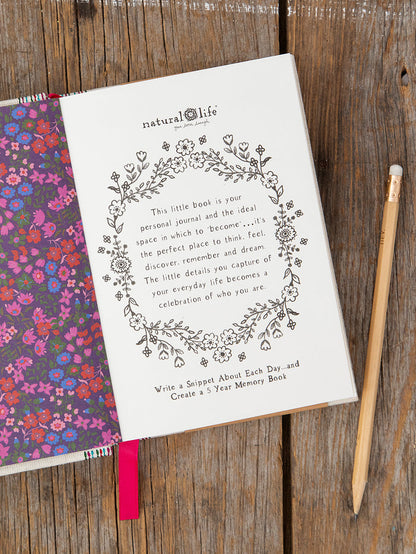 natural life®
This little book is your
personal journal and the ideal
space in which to 'become'...it's
the perfect place to think, feel,
discover, remember and dream.
The little details you capture of
your everyday life becomes a
celebration of who you are.
Write a Snippet About Each Day...and
Create a 5 Year Memory Book